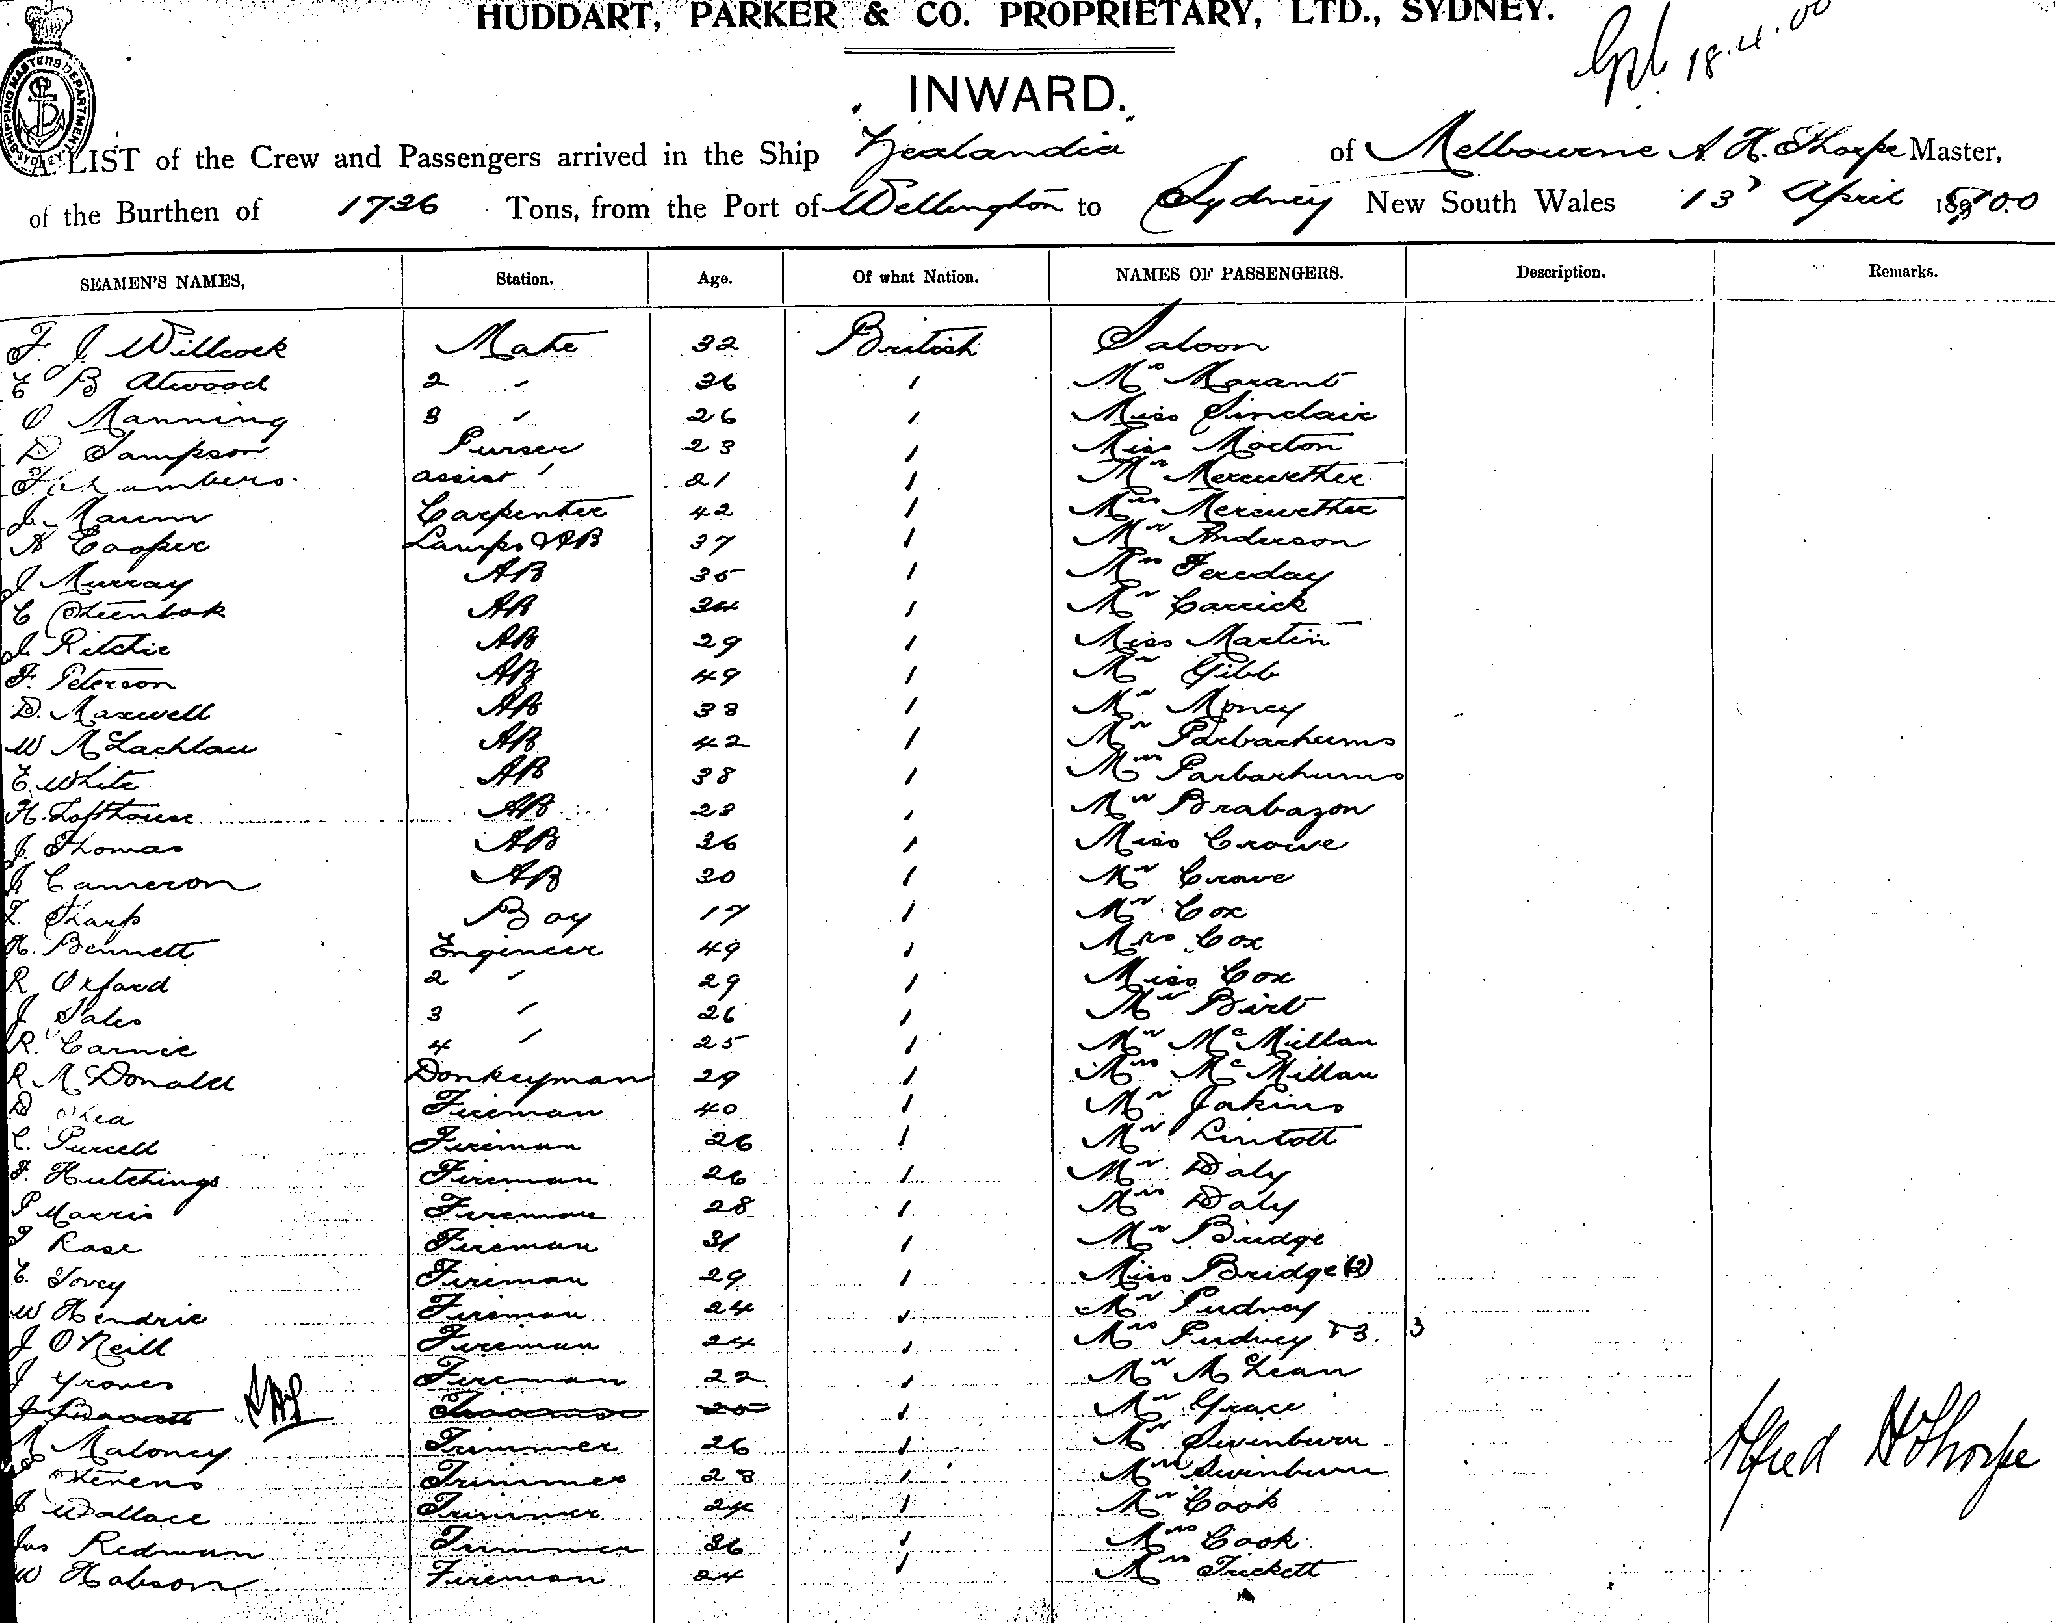 HUDDART, PARKER & CO. PROPRIETARY, LTD., SYDNEY.
18.4.00
INWARD.
SHIPPING MASTERS DEPARTMENT SYDNEY
A LIST of the Crew and Passengers arrived in the Ship Zealandia of Melbourne A. H. Thorpe Master,
of the Burthen of 1726 Tons, from the Port of Wellington to Sydney New South Wales 13 April 1900
SEAMEN'S NAMES, Station. Age. Of what Nation. NAMES OF PASSENGERS. Description. Remarks.
F. J. Willcock Mate 32 British Saloon
E B Atwood 2 " 36 " Mr Morant
O Manning 3 " 26 " Miss Sinclair
D Sampson Purser 23 " Miss Morton
F Chambers assist " 21 " Mr Merewether
J. Carpenter 42 " Mrs Merewether
A Cooper Lamps & AB 37 " Mr Anderson
J Murray AB 35 " Mrs Fereday
C AB 34 " Mr Carrick
J Ritchie AB 29 " Miss Martin
F. Peterson AB 49 " Mr Gibb
D. Maxwell AB 38 " Mr Money
W McLachlan AB 42 " Mr
E. White AB 38 " Mrs
H. Lofthouse AB 23 " Mr Brabazon
J. Thomas AB 26 " Miss Crowe
J Cameron AB 30 " Mr Crowe
Tharp Boy 17 " Mr Cox
H. Bennett Engineer 49 " Mrs Cox
R Oxford 2 " 29 " Miss Cox
J Sales 3 " 26 " Mr Birt
R. Carnie 4 " 25 " Mr McMillan
R McDonald Donkeyman 29 " Mrs McMillan
D Shea Fireman 40 " Mr Jakins
C. Purcell Fireman 26 " Mr Lintott
F. Hutchings Fireman 26 " Mr Daly
P Morris Fireman 28 " Mrs Daly
Rose Fireman 31 " Mr Bridge
E. Tovey Fireman 29 " Miss Bridge (2)
W Hendrie Fireman 24 " Mr Pudney
J O'Neill Fireman 24 " Mrs Pudney & 3. 3
J Groves Fireman 22 " Mr McLean
J " Mr Grace
Maloney Trimmer 26 " Mr Swinburn
Stevens Trimmer 23 " Mrs Swinburn
J Wallace Trimmer 24 " Mr Cook
Jas Redman Trimmer 36 " Mrs Cook
W Hobson Fireman 24 " Mrs Tuckett
Alfred H Thorpe